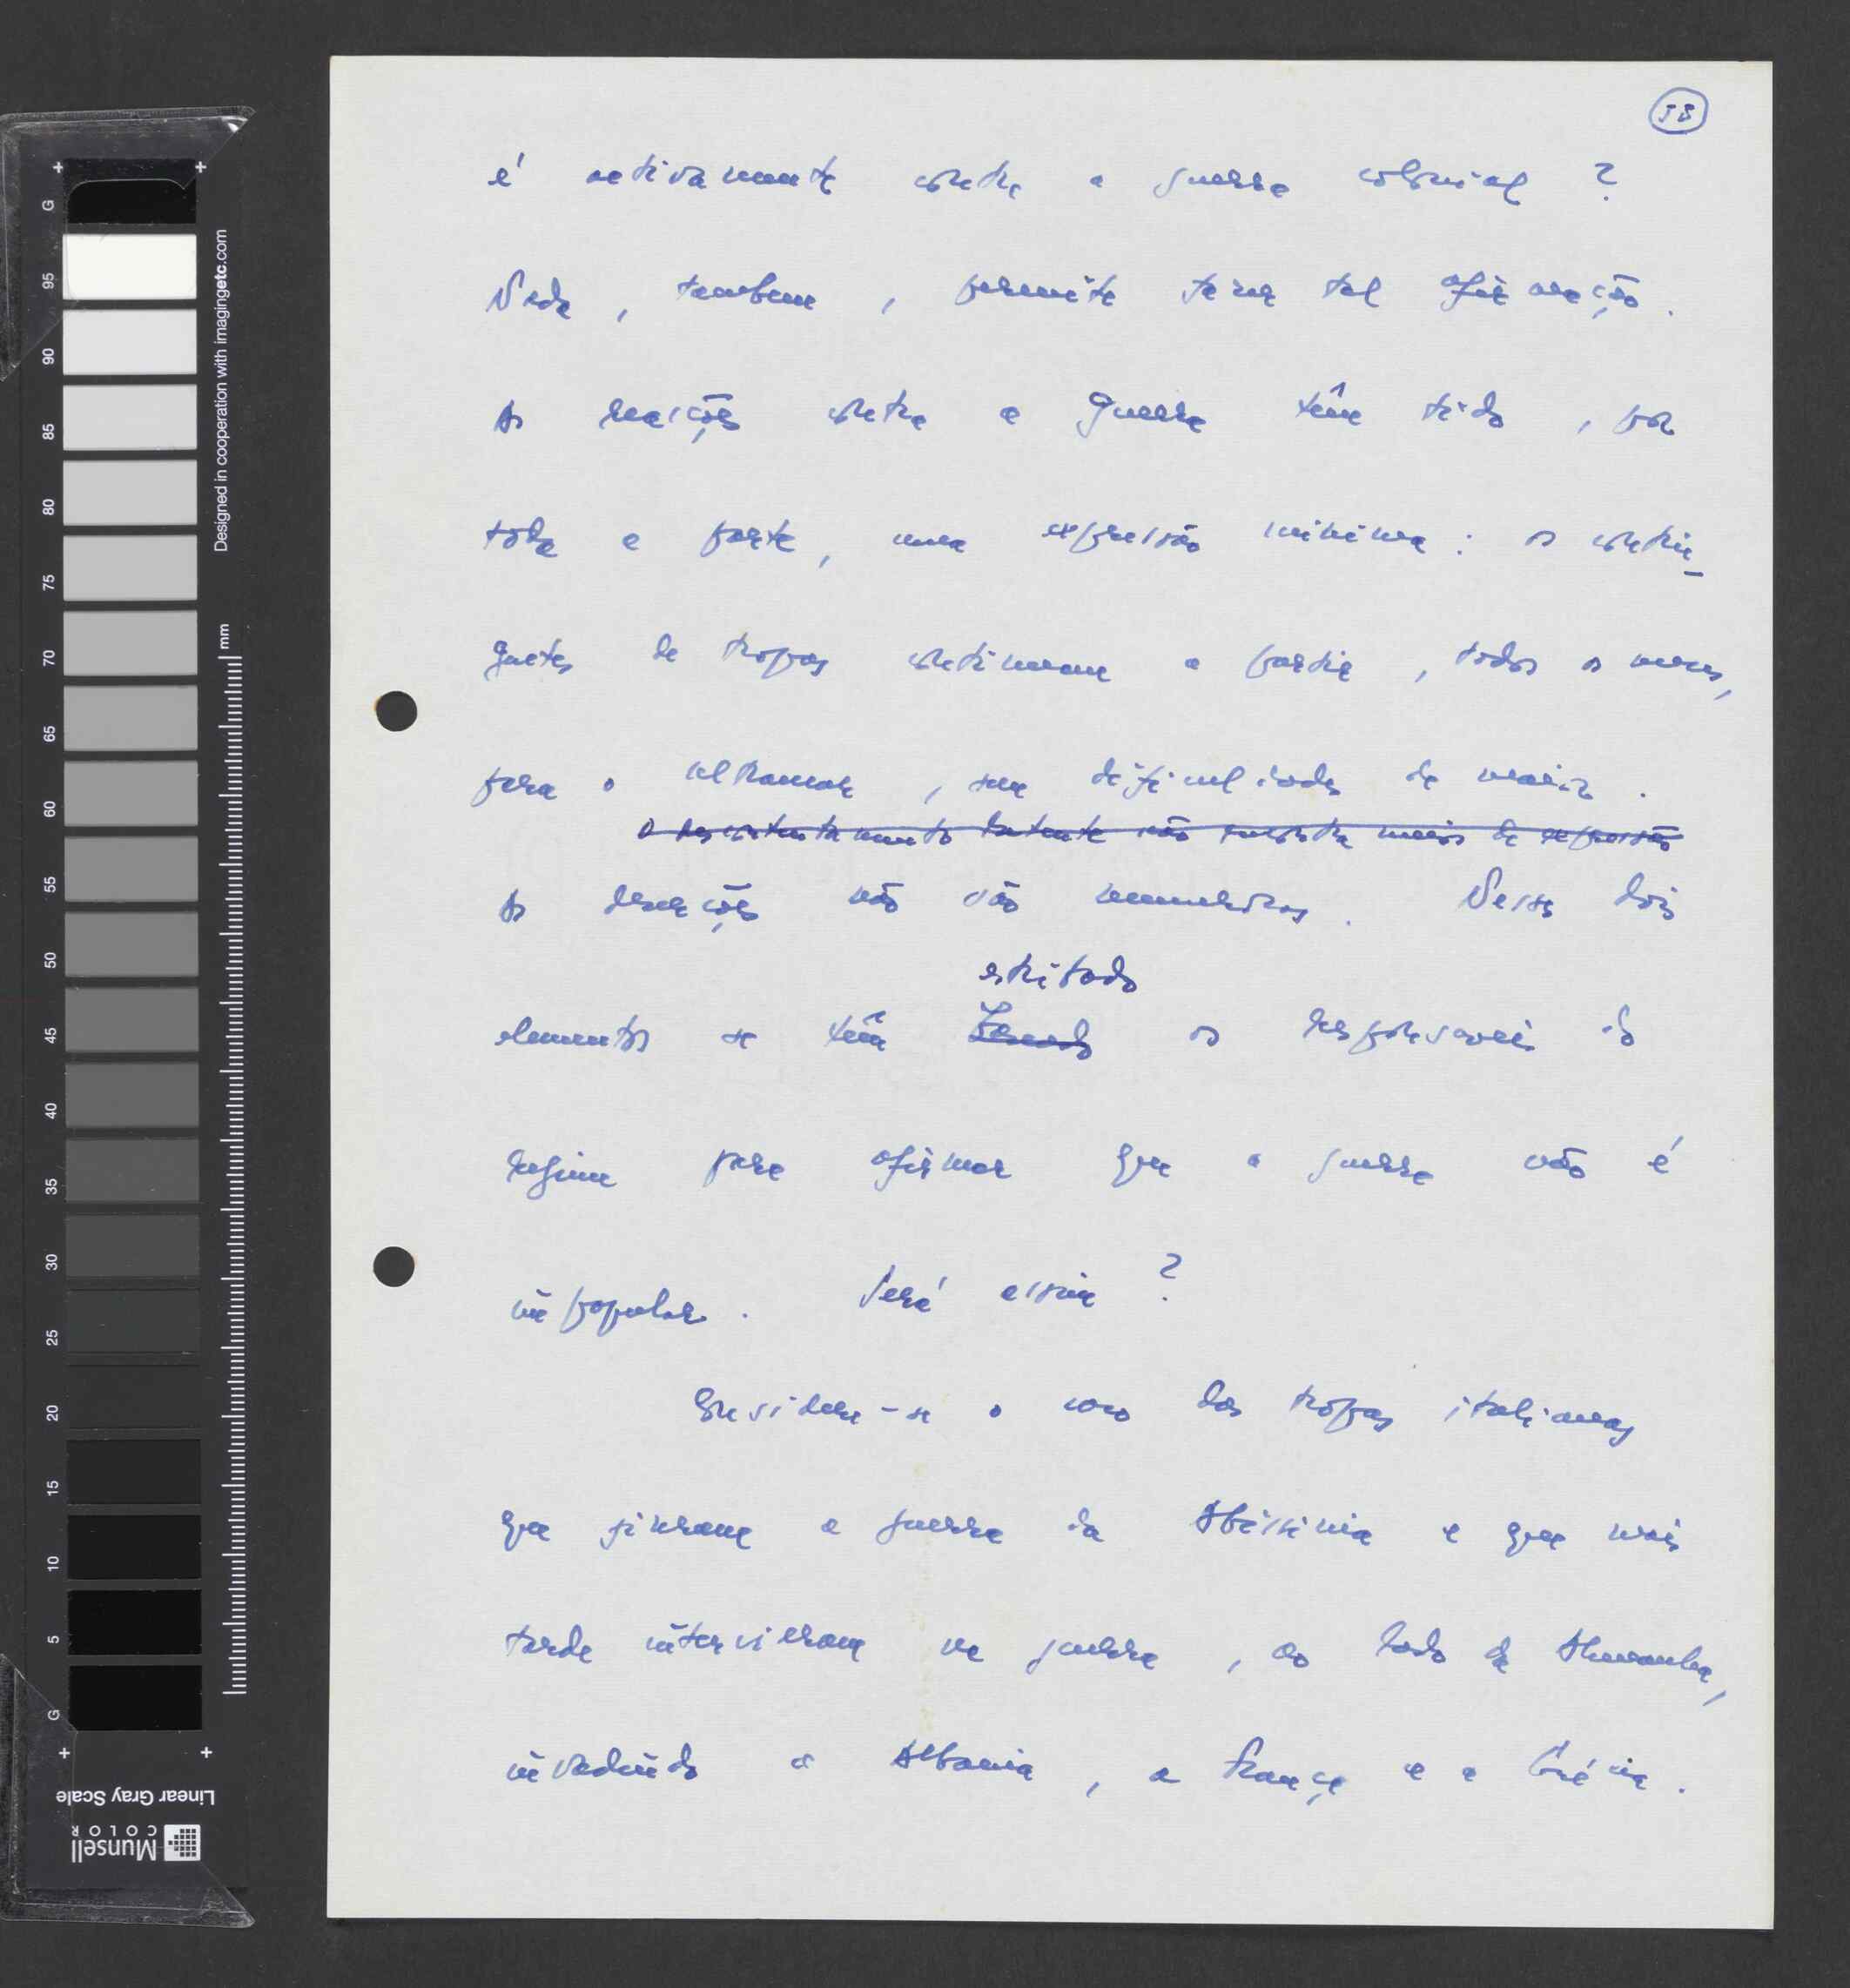 58
é activamente contra a guerra colonial ?
Nada , tambem , permite fazer tal afirmação .
As reacções contra a guerra têm tido , por
toda a parte , uma expressão minima : os contin-
gentes de tropas continuam a partir , todos os meses,
para o ultramar , sem dificuldades de maior .
O descontentamento latente não encontra meios de expressão
As deserções não são numerosas . Nesses dois
estribado
elementos se têm os responsaveis do
regime para afirmar que a guerra não é
impopular . Será assim ?
Considere-se o caso das tropas italianas
que fizeram a guerra da Abissinia e que mais
tarde intervieram na guerra , ao lado da Alemanha,
invadindo a Albania , a França e a Grécia .
G 95 90 85 80 75 70 65 60 55 50 45 40 35 30 25 20 15 10 5 G
Designed in cooperation with imagingetc.com
mm
Linear Gray Scale
Munsell
COLOR